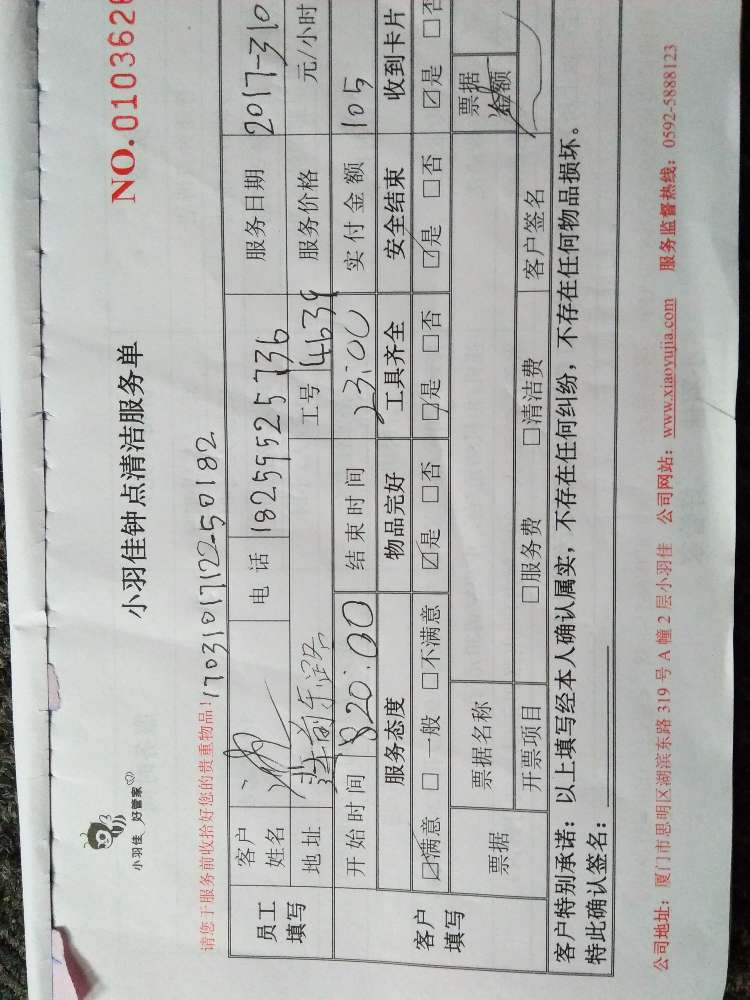 小羽佳 好管家
小羽佳钟点清洁服务单
NO.0103628
请您于服务前收拾好您的贵重物品！17031017122-50182
员工填写
客户姓名
电话 18259525736
服务日期 2017-310
地址
工号 4639
服务价格 元/小时
客户填写
开始时间 20:00
结束时间 23:00
实付金额 105
服务态度 物品完好 工具齐全 安全结束 收到卡片
☑满意 □一般 □不满意 ☑是 □否 ☑是 □否 ☑是 □否 ☑是 □否
票据
票据名称
票据金额
开票项目 □服务费 □清洁费
客户签名
客户特别承诺：以上填写经本人确认属实，不存在任何纠纷，不存在任何物品损坏。
特此确认签名：
公司地址：厦门市思明区湖滨东路 319 号 A 幢 2 层小羽佳 公司网站：www.xiaoyujia.com 服务监督热线：0592-5888123